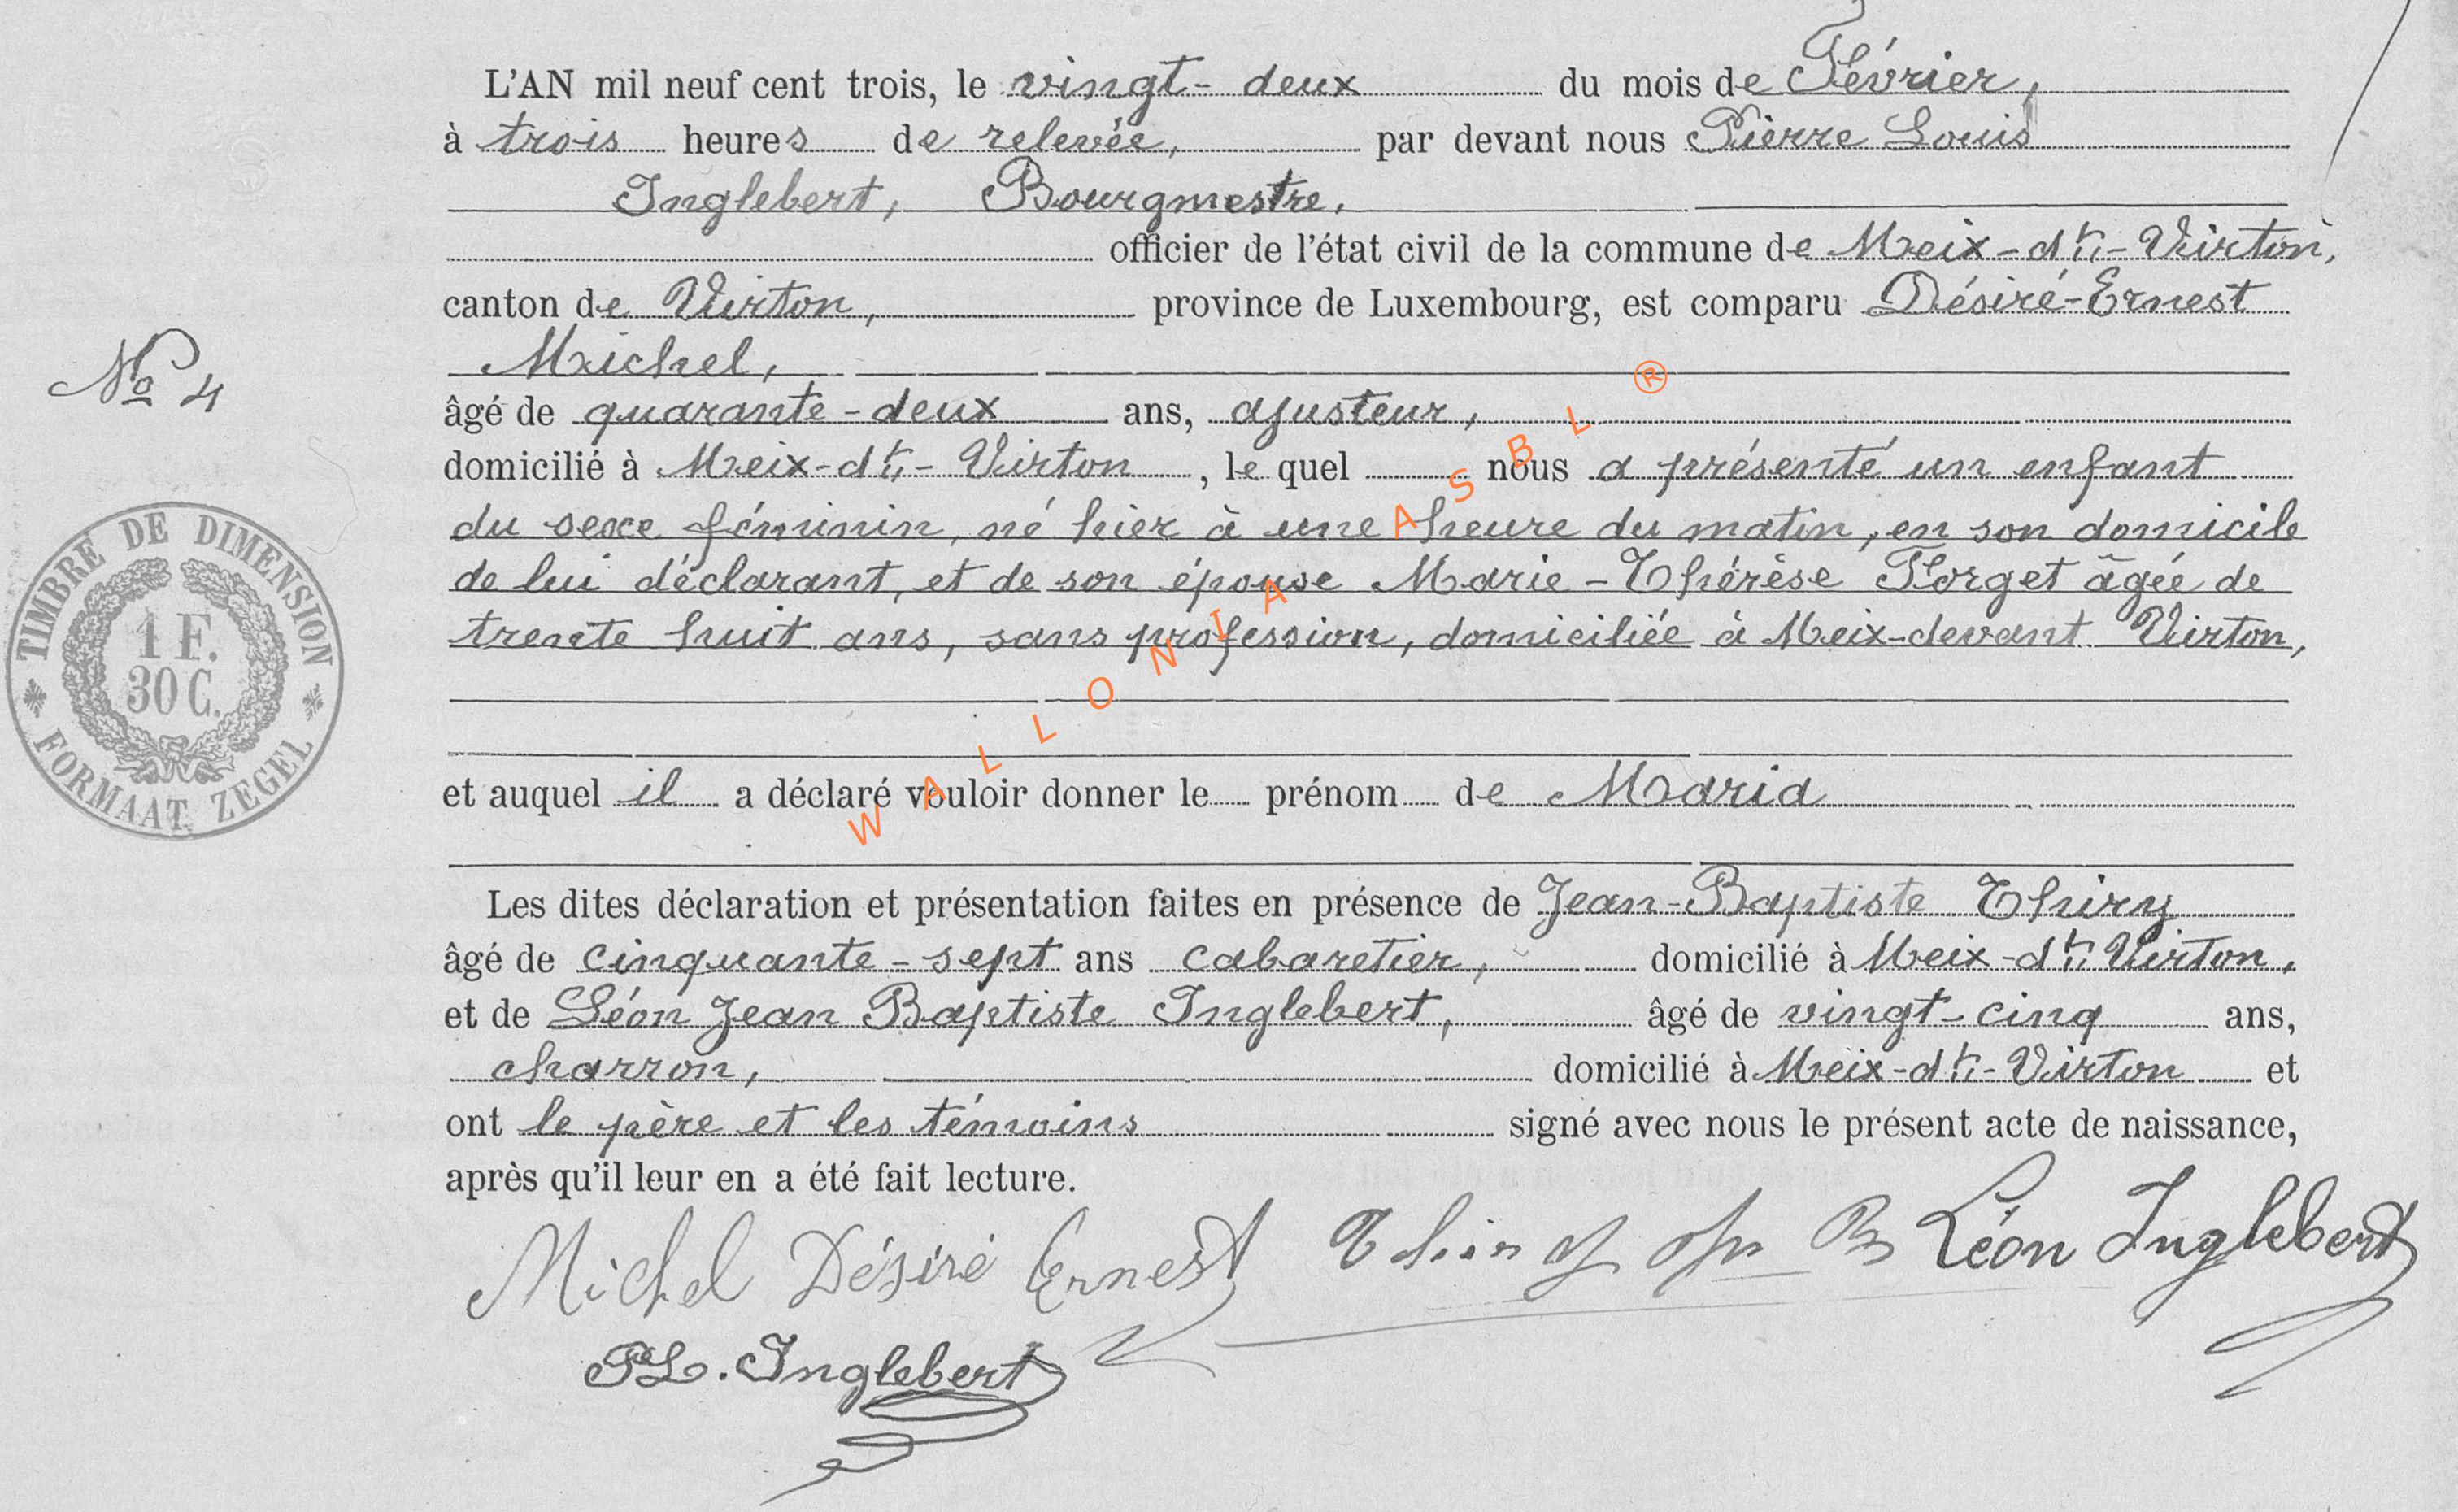 L'AN mil neuf cent trois, le vingt-deux du mois de Février,
à trois heures de relevée, par devant nous Pierre Louis
Inglebert, Bourgmestre,
officier de l'état civil de la commune de Meix-dt-Virton,
canton de Virton, province de Luxembourg, est comparu Désiré-Ernest
Michel,
No 4
âgé de quarante-deux ans, ajusteur,
domicilié à Meix-dt-Virton, le quel nous a présenté un enfant
du sexe féminin, né hier à une heure du matin, en son domicile
de lui déclarant, et de son épouse Marie-Thérèse Forget âgée de
trente huit ans, sans profession, domiciliée à Meix-devant Virton,
TIMBRE DE DIMENSION
1 F.
30 C.
FORMAAT ZEGEL
et auquel il a déclaré vouloir donner le prénom de Maria
Les dites déclaration et présentation faites en présence de Jean-Baptiste Thiry
âgé de cinquante-sept ans cabaretier, domicilié à Meix-dt Virton,
et de Léon Jean Baptiste Inglebert, âgé de vingt-cinq ans,
charron, domicilié à Meix-dt-Virton et
ont le père et les témoins signé avec nous le présent acte de naissance,
après qu'il leur en a été fait lecture.
Michel Désiré Ernest Thiry Léon Inglebert
PL. Inglebert
WALLONIA ASBL ®